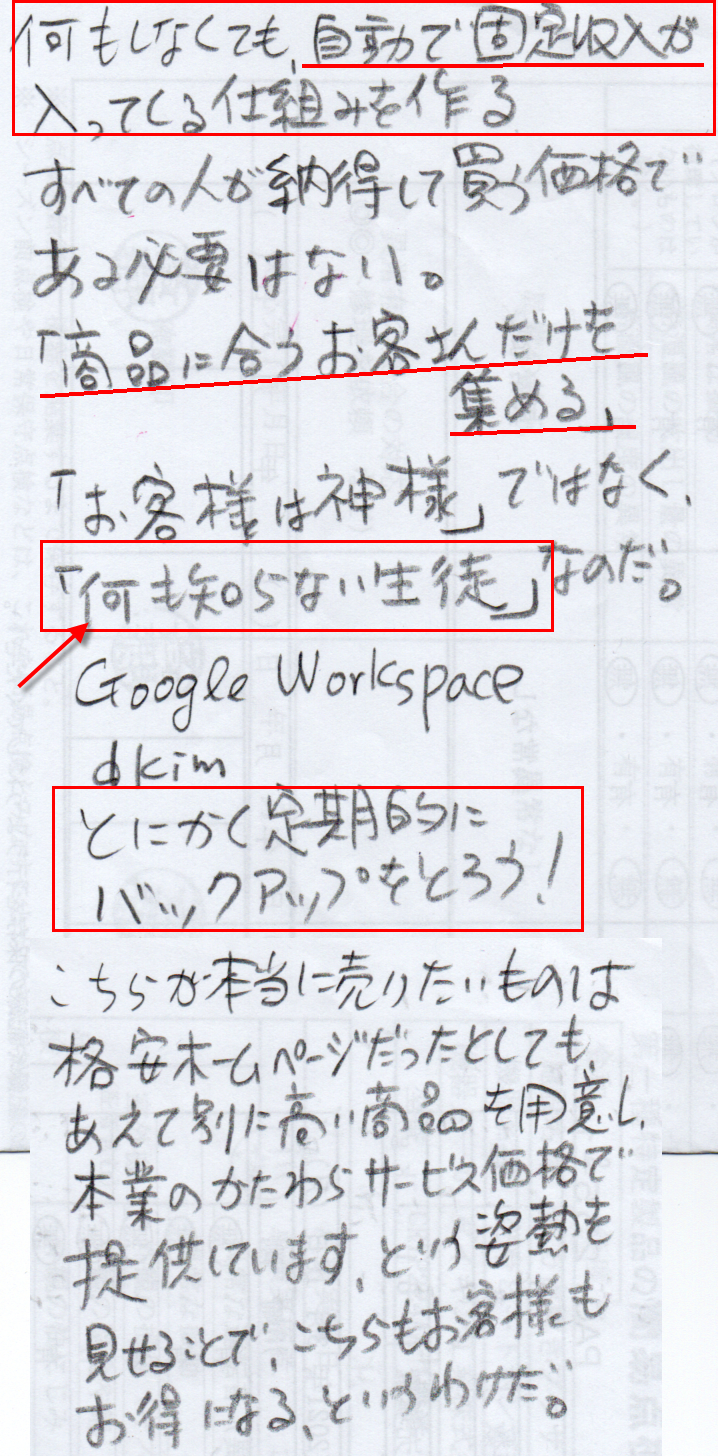 何もしなくても、自動で固定収入が
入ってくる仕組みを作る
すべての人が納得して買う価格で
ある必要はない。
「商品に合うお客さんだけを
集める」
「お客様は神様」ではなく、
「何も知らない生徒」なのだ。
Google Workspace
dkim
とにかく定期的に
バックアップをとろう!
こちらが本当に売りたいものは
格安ホームページだったとしても、
あえて別に高い商品を用意し、
本業のかたわらサービス価格で
提供しています、という姿勢を
見せることで、こちらもお客様も
お得になる、というわけだ。